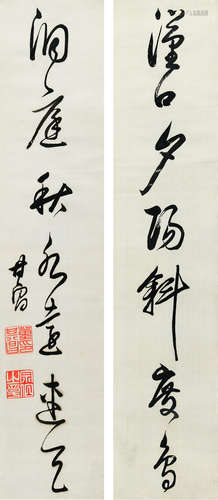 漢口夕陽斜度鳥
洞庭秋水遠連天
其昌